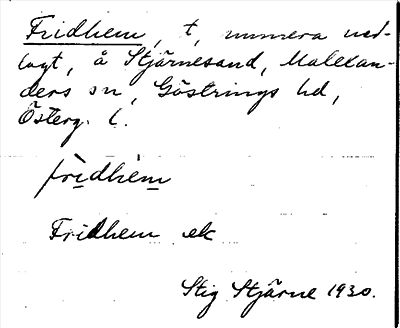 Fridhem, t, numera ned-
lagt, å Stjärnesand, Malexan-
ders sn, Göstrings hd,
Österg. l.
frìdhèm
Fridhem ek
Stig Stjärne 1930.